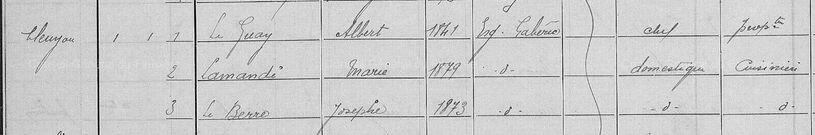 1 1 1 Le Guay Albert 1841 Erg. Gabéric chef prop.re
2 Lamandé Marie 1879 -d- domestique Cuisinière
3 Le Berre Josephe 1873 -d- -d- -d-